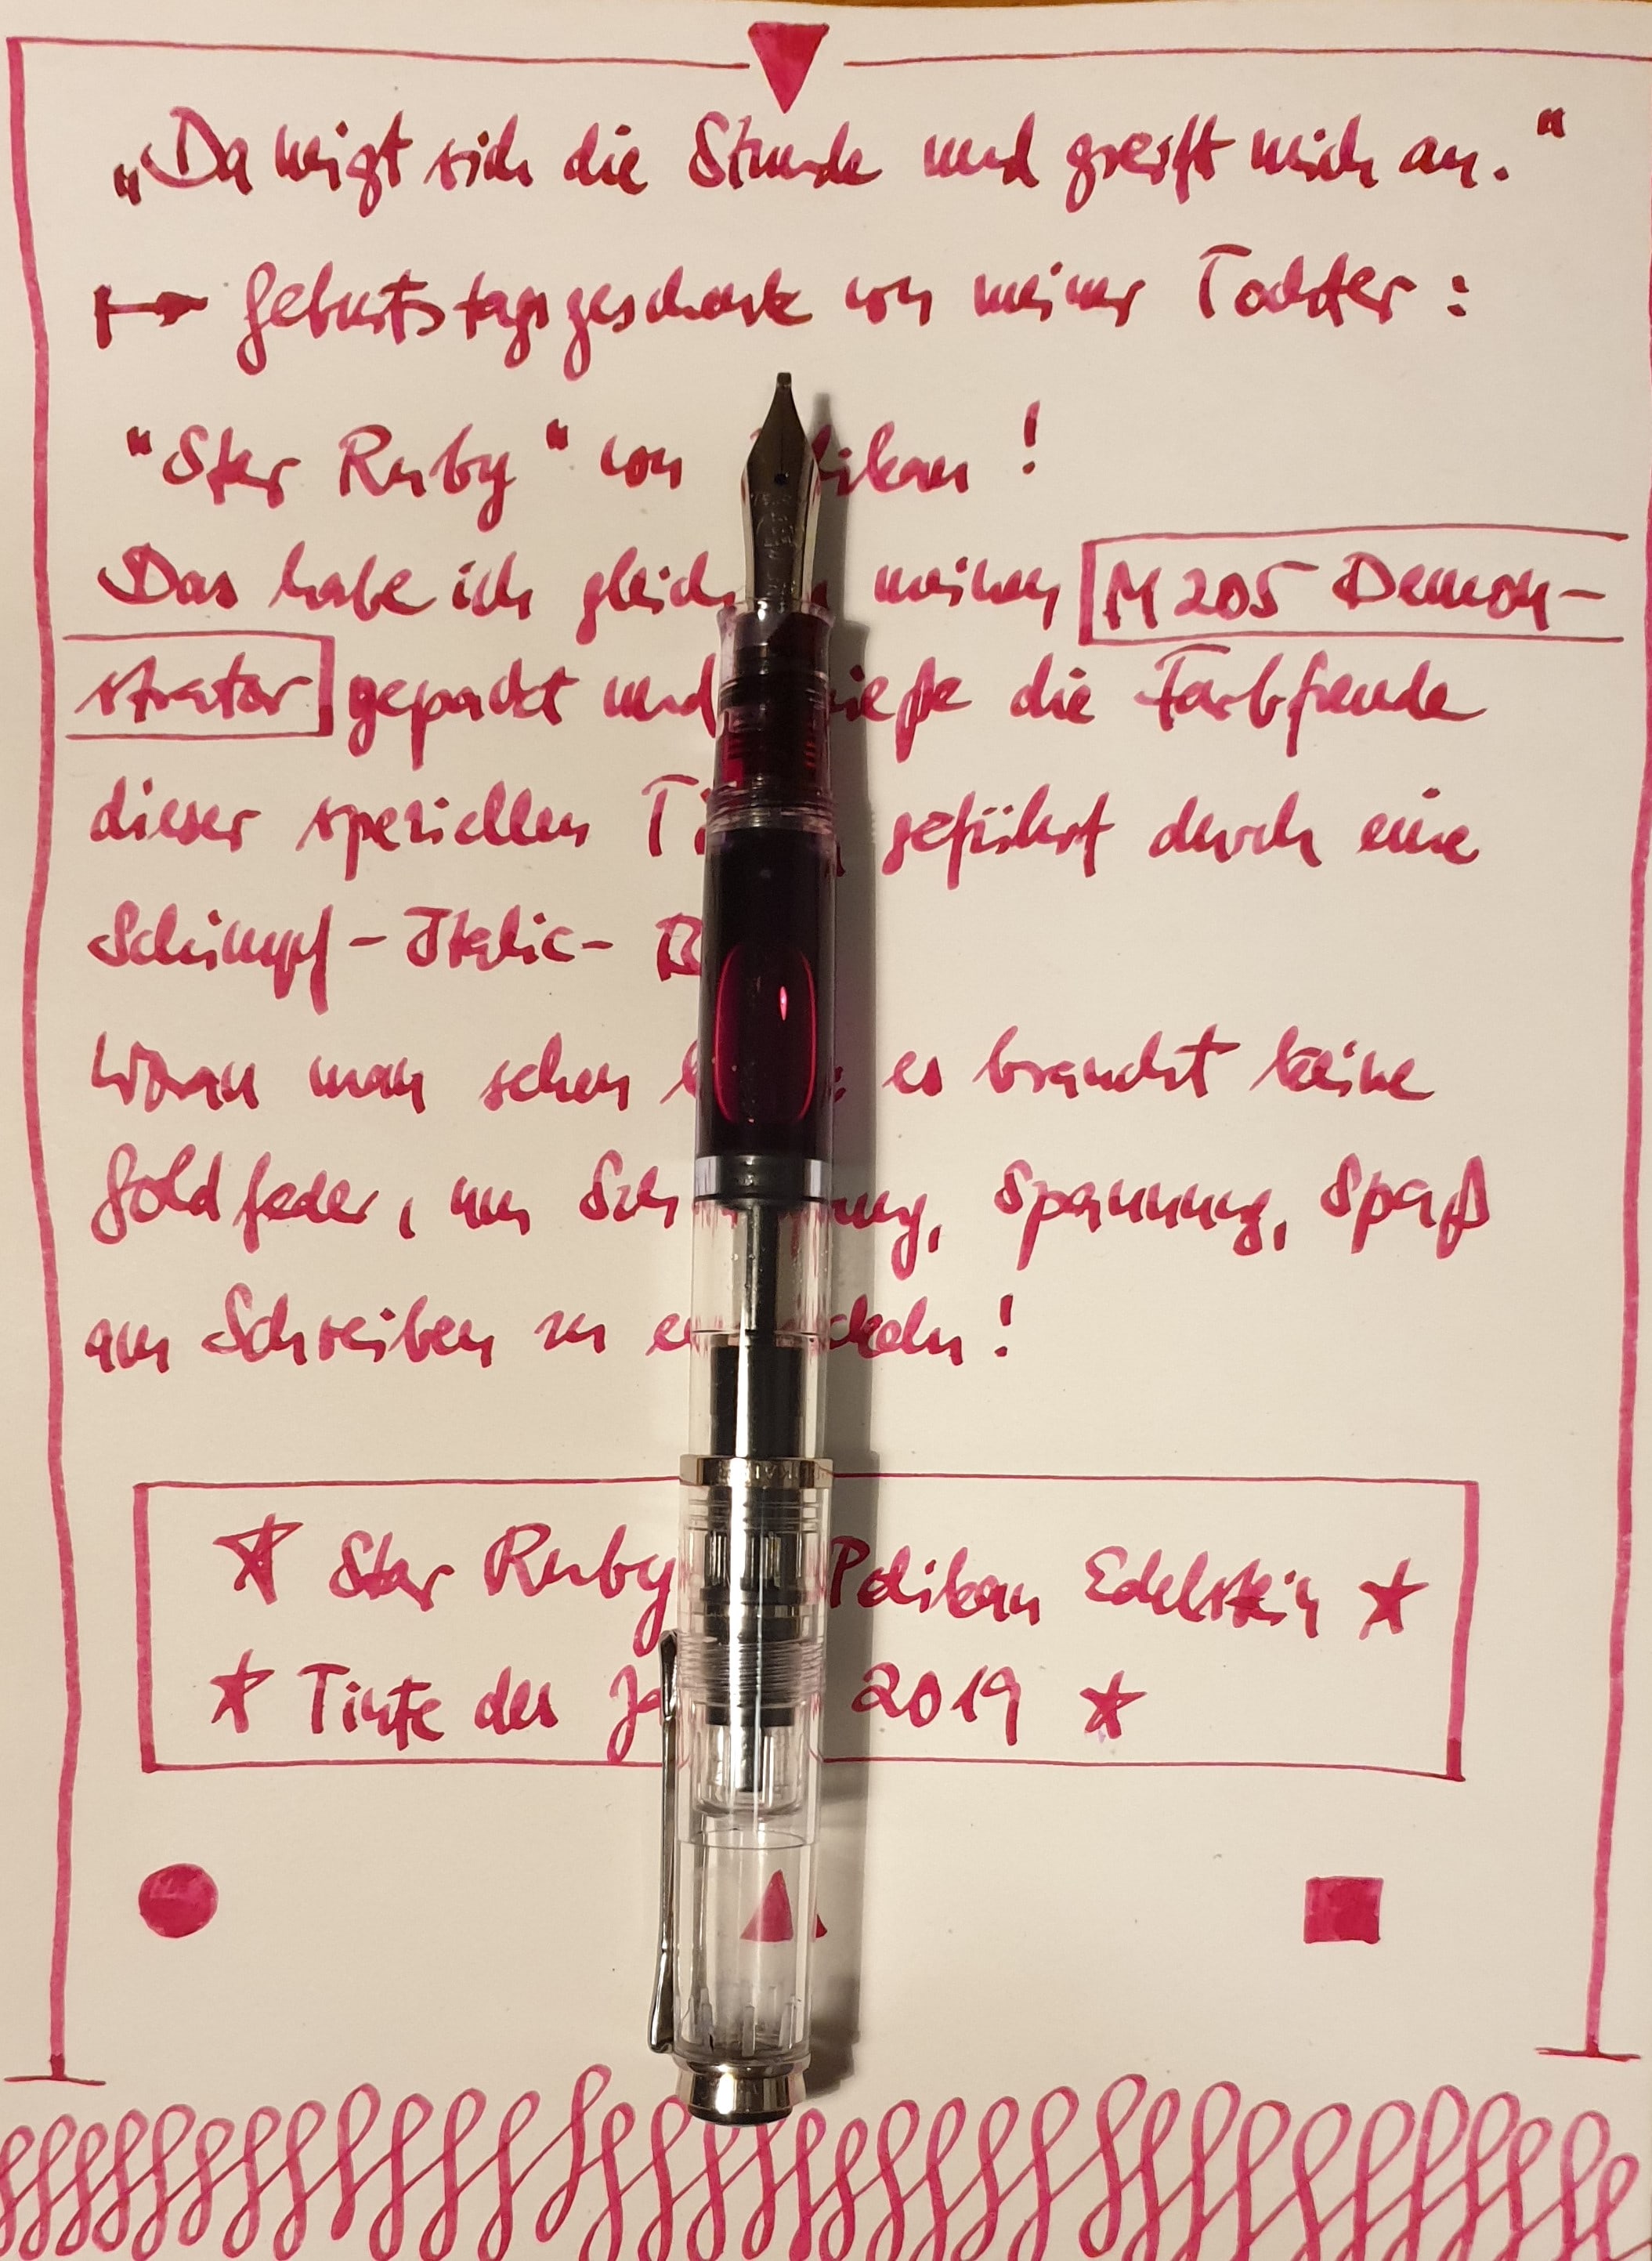 „Da neigt sich die Stunde und greift mich an."
Geburtstagsgeschenk von meiner Tochter:
"Star Ruby" von Pelikan!
Das habe ich gleich meinen M205 Demon-
strator gepackt und die Farbfreude
dieser speziellen geführt durch eine
Schimpf-Italic-
Woran man sehen : es braucht keine
Goldfeder, um , Spannung, Spaß
am Schreiben zu entwickeln!
Star Ruby Pelikan Edelstein
Tinte des Jahres 2019